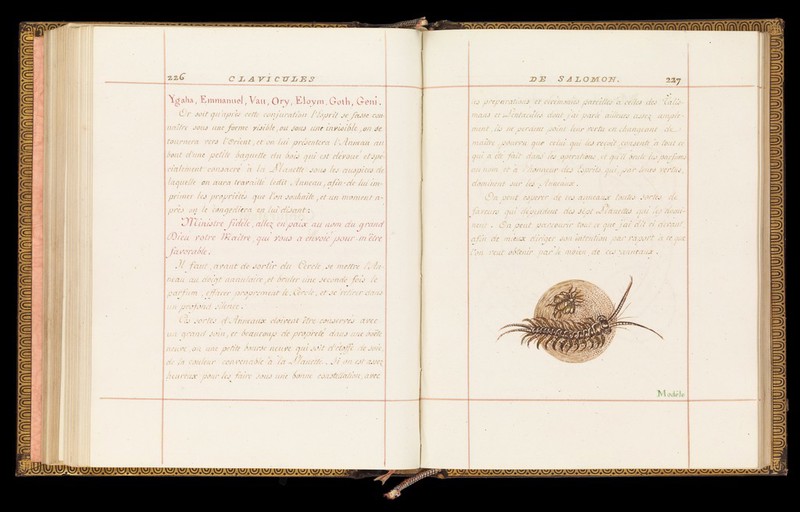 226 CLAVICULES
Ygaha, Emmanuel, Vau, Ory, Eloym, Goth, Geni.
Or soit qu'après cette conjuration l'Esprit se fasse con-
noître sous une forme visible, ou sous une invisible, on se
tournera vers l'Orient, et on lui présentera l'Anneau au
bout d'une petite baguette du bois qui est dévoué et spé-
cialement consacré à la Planette sous les auspices de
laquelle on aura travaillé ledit Anneau, afin de lui im-
primer les propriétés que l'on souhaite, et un moment a-
près on le congédiera en lui disant:
Ministre fidèle, allez en paix au nom du grand
Dieu votre Maître, qui vous a envoié pour m'être
favorable.
Il faut, avant de sortir du Cercle, se mettre l'An-
neau au doigt annulaire, et brûler une seconde fois le
parfum, effacer proprement le Cercle, et se retirer dans
un profond silence.
Ces sortes d'Anneaux doivent être conservés avec
un grand soin, et beaucoup de propreté dans une boëte
neuve, ou une petite bourse neuve qui soit d'étoffe de soie,
de la couleur convenable à la Planette. Si on est assez
heureux pour les faire sous une bonne constellation, avec
DE SALOMON. 227
les préparations et cérémonies pareilles à celles des Talis-
mans et Pentacules dont j'ai parlé ailleurs assez ample-
ment, ils ne perdent point leur vertu en changeant de
maître, pourvu que celui qui les reçoit consente à tout ce
qui a été fait dans les opérations, et qu'il brûle les parfums
au nom et à l'honneur des Esprits qui, par leurs vertus,
dominent sur les Anneaux.
On peut espérer de ces anneaux toutes sortes de
faveurs qui dépendent des sept Planettes qui les
On peut parcourir tout ce que j'ai dit ci devant,
afin de mieux diriger son intention par rapport à ce que
l'on veut obtenir par le moien de ces anneaux.
Modèle